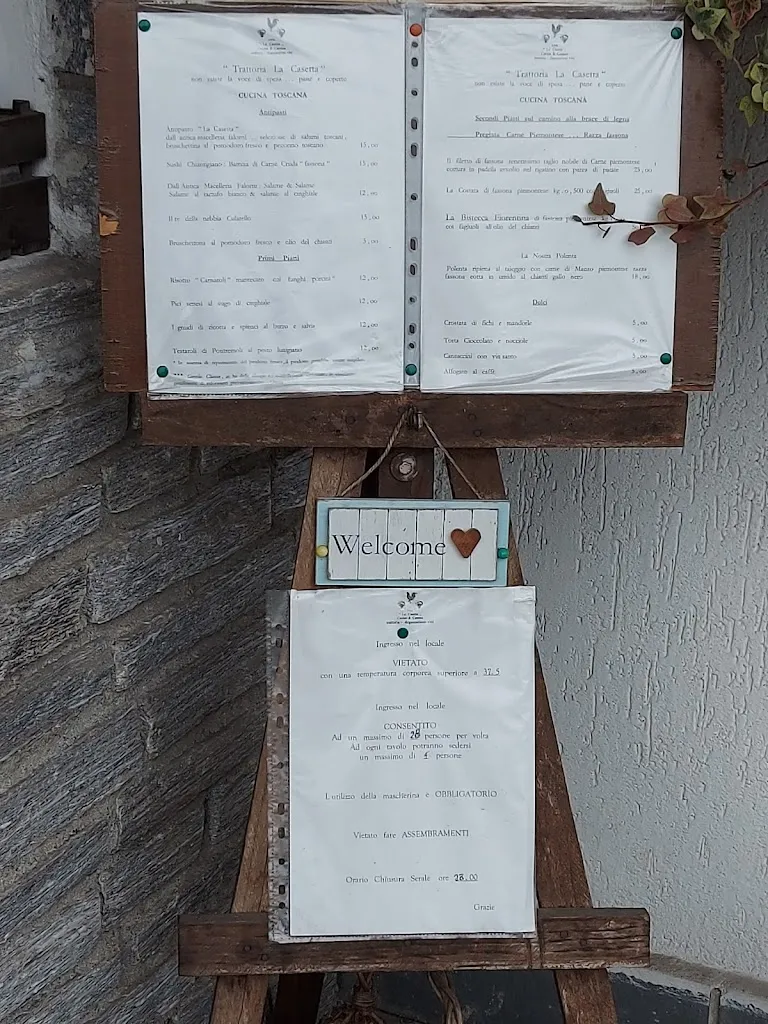 " Trattoria La Casetta"
non esiste la voce di spesa ... pane e coperto
CUCINA TOSCANA
Antipasti
Antipasto "La Casetta"
bruschettina al pomodoro fresco e pecorino toscano 15,00
Sushi Chiantigiano: Battuta di Carne Cruda "fassona" 15,00
Dall'Antica Macelleria Falorni: Salame & Salame
Salame al tartufo bianco & salame al cinghiale 12,00
Il re della nebbia Culatello 15,00
Bruschettina al pomodoro fresco e olio del chianti 5,00
Primi Piatti
Risotto "Carnaroli" mantecato coi funghi porcini" 12,00
Pici senesi al ragù di cinghiale 12,00
I gnudi di ricotta e spinaci al burro e salvia 12,00
Testaroli di Pontremoli al pesto lunigiano 12,00
" Trattoria La Casetta "
non esiste la voce di spesa ... pane e coperto
CUCINA TOSCANA
Secondi Piatti sul camino alla brace di legna
Pregiata Carne Piemontese ... Razza fassona
Il filetto di fassone tenerissimo taglio nobile di Carne piemontese
25,00
La Costata di fassona piemontese kg.0,500 con 25,00
La Bistecca Fiorentina di fassona
con fagiuoli all'olio del chianti
La Nostra Polenta
Polenta ripiena al taleggio con carne di Manzo piemontese razza
fassona cotta in umido al chianti gallo nero 18,00
Dolci
Crostata di Fichi e mandorle 5,00
Torta Cioccolato e nocciole 5,00
Cantuccini con vin santo 5,00
Affogato al caffè 5,00
Welcome
Ingresso nel locale
VIETATO
con una temperatura corporea superiore a 37.5
Ingresso nel locale
CONSENTITO
Ad un massimo di 28 persone per volta
Ad ogni tavolo potranno sedersi
un massimo di 4 persone
L'utilizzo della mascherina e OBBLIGATORIO
Vietato fare ASSEMBRAMENTI
Orario Chiusura Serale ore 23.00
Grazie